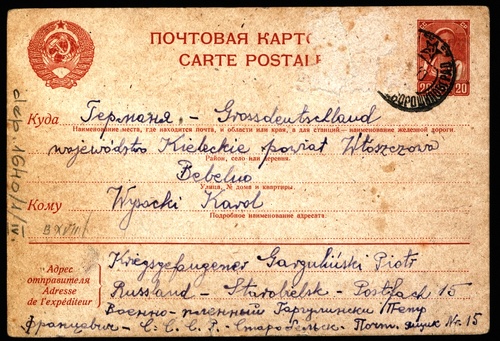 ПОЧТОВАЯ КАРТО
CARTE POSTALE
20 20
ВОРОШИЛОВГРАД
Куда Германя. - Grossdeutschland
Наименование места, где находится почта, и области или края, а для станций - наименование железной дороги.
województwo Kieleckie powiat Włoszczowa
Район, село или деревня.
Bebelno
Улица, № дома и квартиры
Кому Wysocki Karol
Подробное наименование адресата.
Адрес отправителя
Adresse de l'expéditeur
Kriegsgefangener Garguliński Piotr
Russland - Starobielsk - Postfach 15
Военно-пленный Гаргулински Петр
Францевич - С.С.С.Р. - Старобельск. Почт. ящик Nr. 15
dep. 1640